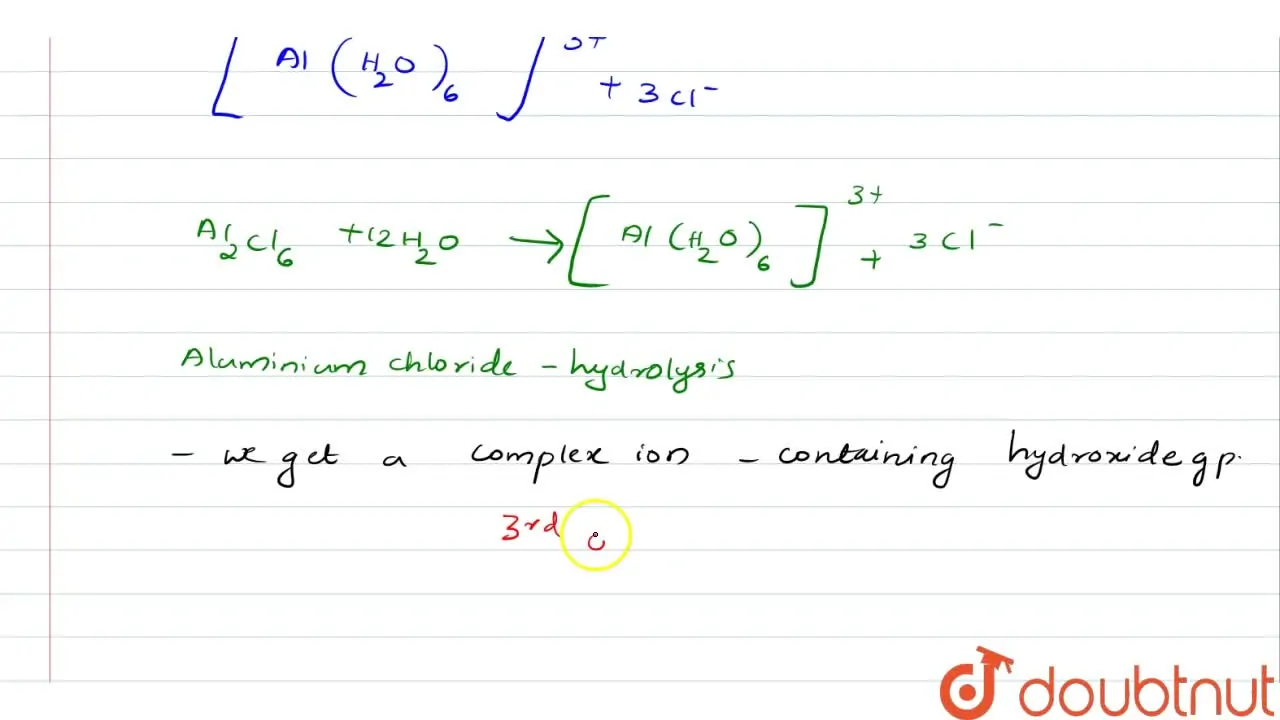 [Al(H2O)6]3+ + 3Cl-
Al2Cl6 +12H2O → [Al(H2O)6]3+ + 3Cl-
Aluminium chloride - hydrolysis
- we get a complex ion - containing hydroxide gp.
3rd
doubtnut